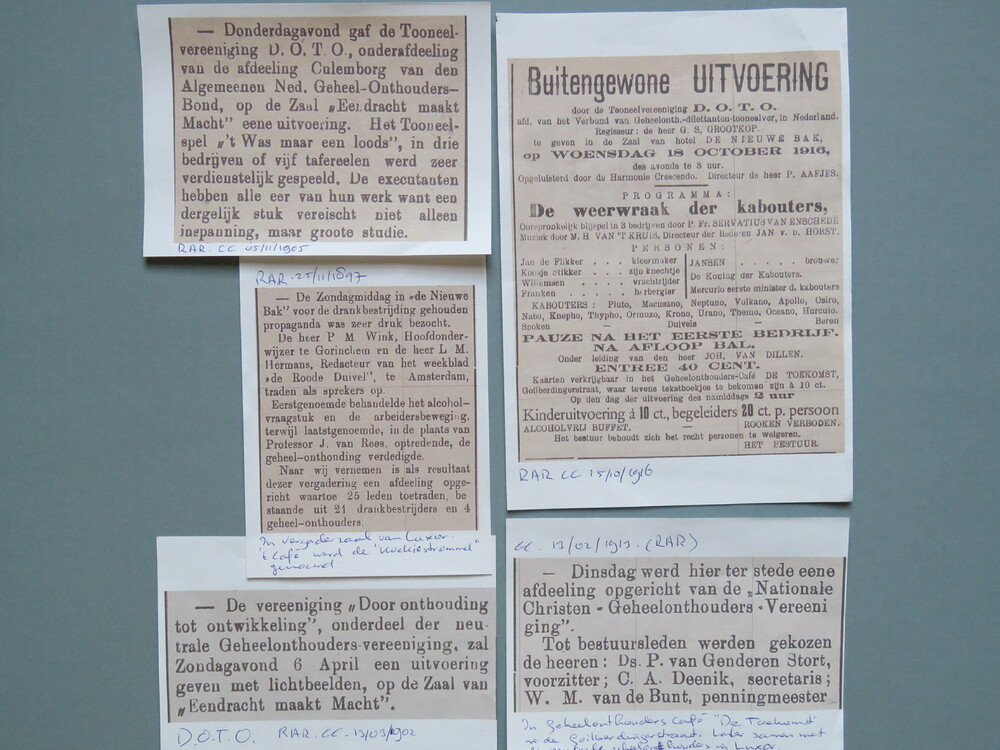 — Donderdagavond gaf de Tooneel-
vereeniging D. O. T O., onderafdeeling
van de afdeeling Culemborg van den
Algemeenen Ned. Geheel-Onthouders-
Bond, op de Zaal „Eendracht maakt
Macht" eene uitvoering. Het Tooneel-
spel „'t Was maar een loods", in drie
bedrijven of vijf tafereelen werd zeer
verdienstelijk gespeeld. De executanten
hebben alle eer van hun werk want een
dergelijk stuk vereischt niet alleen
inspanning, maar groote studie.
RAR. CC 05/11/1905
RAR. 25/11/1897
— De Zondagmiddag in „de Nieuwe
Bak" voor de drankbestrijding gehouden
propaganda was zeer druk bezocht.
De heer P M. Wink, Hoofdonder-
wijzer te Gorinchem en de heer L M.
Hermans, Redacteur van het weekblad
„de Roode Duivel", te Amsterdam,
traden als sprekers op.
Eerstgenoemde behandelde het alcohol-
vraagstuk en de arbeidersbeweging,
terwijl laatstgenoemde, in de plaats van
Professor J. van Rees, optredende, de
geheel-onthonding verdedigde.
Naar wij vernemen is als resultaat
dezer vergadering een afdeeling opge-
richt waartoe 25 leden toetraden, be-
staande uit 21 drankbestrijders en 4
geheel-onthouders.
In vergaderzaal van Luxor.
't Café werd de "Koekjestrommel"
genoemd.
— De vereeniging „Door onthouding
tot ontwikkeling", onderdeel der neu-
trale Geheelonthouders-vereeniging, zal
Zondagavond 6 April een uitvoering
geven met lichtbeelden, op de Zaal van
„Eendracht maakt Macht".
D.O.T.O. RAR. CC. 13/03/1902
Buitengewone UITVOERING
door de Tooneelvereeniging D. O. T. O.
afd. van het Verbond van Geheelonth.-dilettanten-tooneelver. in Nederland.
Regisseur: de heer G. S. GROOTKOP.
te geven in de Zaal van hotel DE NIEUWE BAK,
op WOENSDAG 18 OCTOBER 1916,
des avonds te 8 uur.
Opgeluisterd door de Harmonie Crescendo. Directeur de heer P. AAFJES.
PROGRAMMA:
De weerwraak der kabouters,
Oorspronkelijk blijspel in 3 bedrijven door P. Fr. SERVATIUS VAN ENSCHEDE
Muziek door M. H VAN 'T KRUIS, Directeur der liederen JAN v. D. HORST.
PERSONEN:
Jan de Flikker . . . . kleermaker
Koosje Flikker . . . . zijn knechtje
Willemsen . . . . vrachtrijder
Franken . . . . herbergier
JANSEN . . . . brouwer
De Koning der Kabouters.
Mercurio eerste minister d. kabouters
KABOUTERS: Pluto, Macusano, Neptuno, Vulkano, Apollo, Osiro,
Nabo, Knepho, Thypho, Ormuzo, Krono, Urano, Themo, Oceano, Hurculo.
Spoken — Duivels — Beren
PAUZE NA HET EERSTE BEDRIJF.
NA AFLOOP BAL.
Onder leiding van den heer JOH. VAN DILLEN.
ENTREE 40 CENT.
Kaarten verkrijgbaar in het Geheelonthouders-Café DE TOEKOMST,
Goilberdingerstraat, waar tevens tekstboekjes te bekomen zijn à 10 ct.
Op den dag der uitvoering des namiddags 2 uur
Kinderuitvoering à 10 ct., begeleiders 20 ct. p. persoon
ALCOHOLVRIJ BUFFET. — ROOKEN VERBODEN.
Het bestuur behoudt zich het recht personen te weigeren.
HET BESTUUR.
RAR CC 15/10/1916
CC. 13/02/1913. (RAR)
— Dinsdag werd hier ter stede eene
afdeeling opgericht van de „Nationale
Christen-Geheelonthouders-Vereeni
ging".
Tot bestuursleden werden gekozen
de heeren: Ds. P. van Genderen Stort,
voorzitter; C. A. Deenik, secretaris;
W. M. van de Bunt, penningmeester
In geheelonthouders café "De Toekomst"
in de Goilberdingerstraat. Later samen met
geheelonthouders in Luxor.